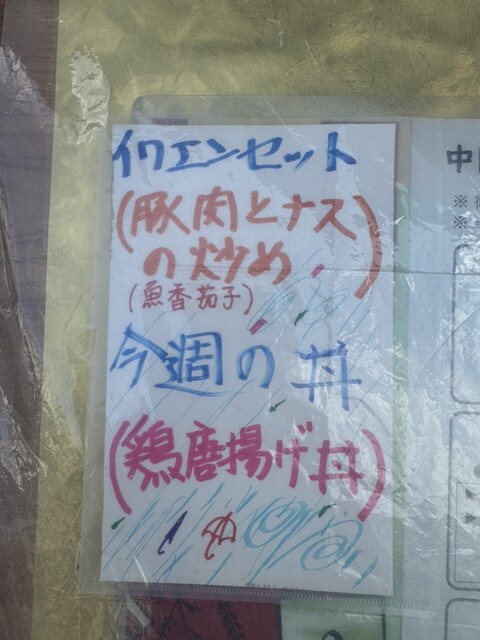 イワエンセット
(豚肉とナス
の炒め)
(魚香茄子)
今週の丼
(鶏唐揚げ丼)
中
※
※